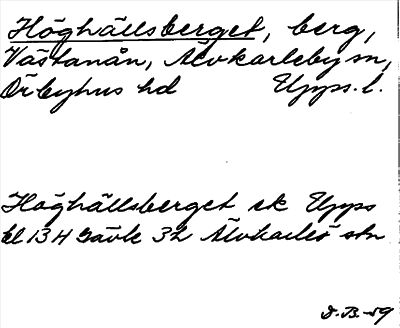 Höghällsberget, berg,
Västanån, Älvkarleby sn,
Örbyhus hd Upps. l.
Höghällsberget sk Upps
bl 13 H Gävle 3h Älvkarleö stn
D. B. -59